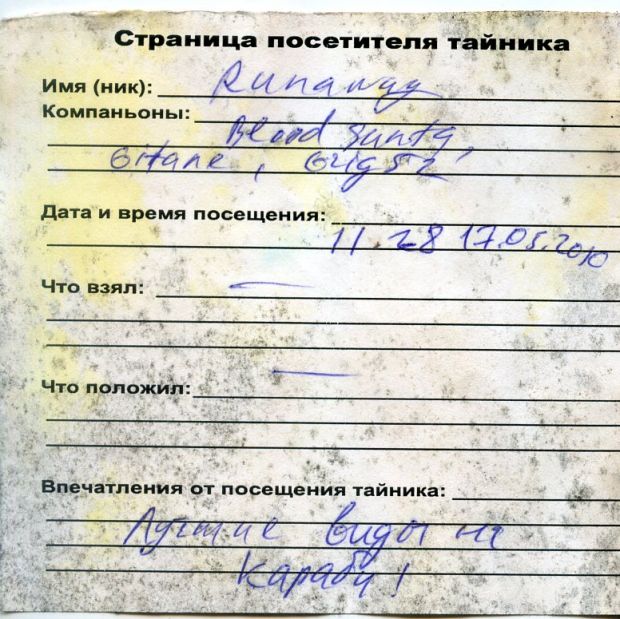 Страница посетителя тайника
Имя (ник): Runaway
Компаньоны:
Blood
Gitane,
Дата и время посещения:
11.28 17.05.2010
Что взял: —
Что положил: —
Впечатления от посещения тайника:
Лучшие виды на
Караби!